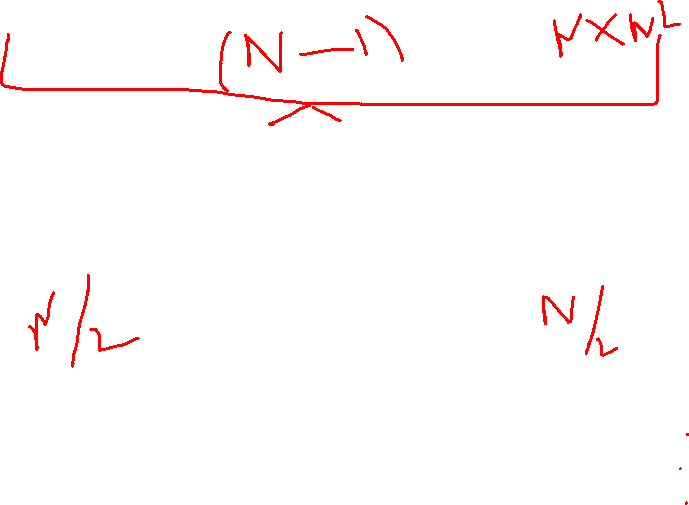 (N-1) N×N²
N/2 N/2